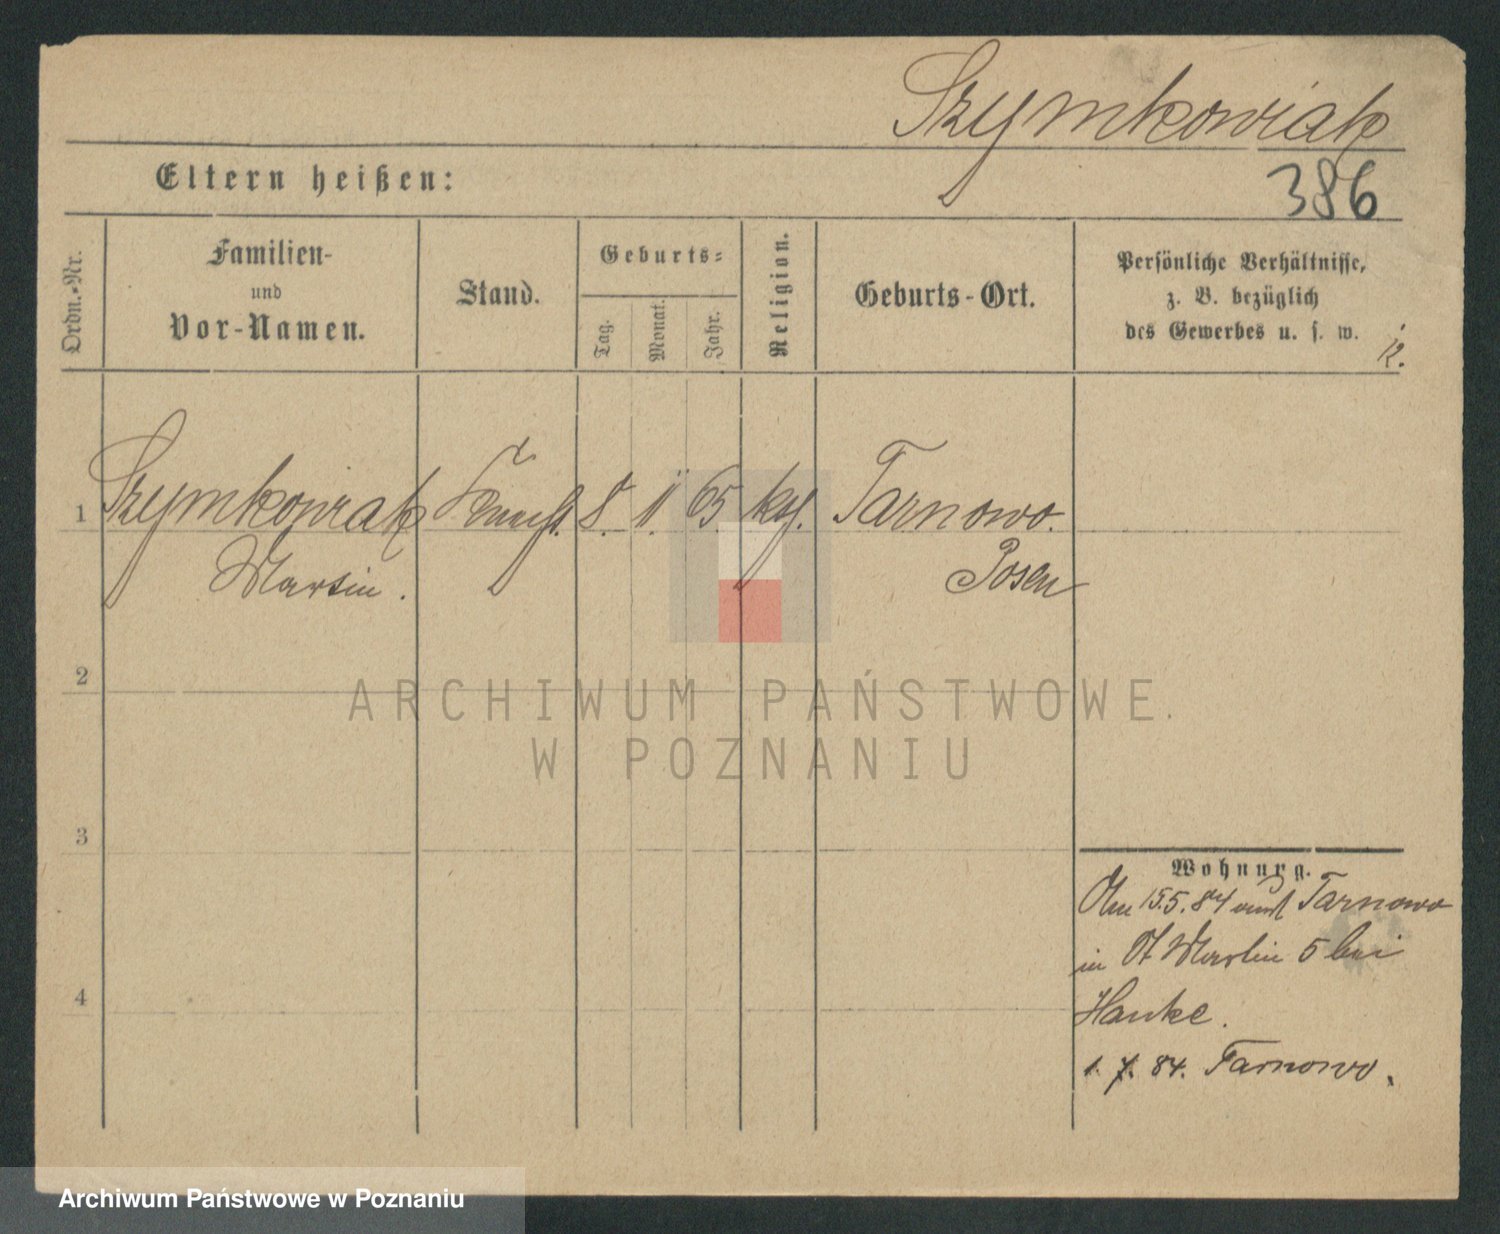 Szymkowiak
Eltern heißen:
386
Ordn.-Nr.
Familien-
und
Vor-Namen.
Stand.
Geburts-
Tag.
Monat.
Jahr.
Religion.
Geburts-Ort.
Persönliche Verhältnisse,
z. B. bezüglich
des Gewerbes u. s. w.
1 Szymkowiak 8. 11. 65. kth. Tarnowo.
Martin. Posen
2
3
4
Wohnung.
15.5.84 Tarnowo
in St Martin 5 bei
Hanke.
1. 7. 84. Tarnowo.
ARCHIWUM PAŃSTWOWE
W POZNANIU
Archiwum Państwowe w Poznaniu